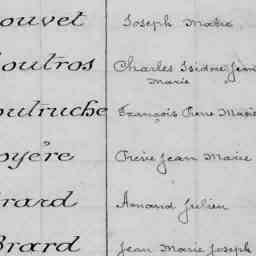 ouvet Joseph Mathe
outros Charles Isidore Jean
Marie
outruche François Pierre Marie
oyère Pierre Jean Marie
rard Armand Julien
Brard Jean Marie Joseph